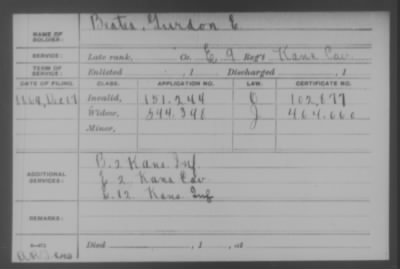 NAME OF SOLDIER:
Gurdon E.
SERVICE:
Late rank, Co. E 9 Reg't Kans Cav
TERM OF SERVICE:
Enlisted , 1 Discharged , 1
DATE OF FILING. CLASS. APPLICATION NO. LAW. CERTIFICATE NO.
1868, Dec 17 Invalid, 151.244 102,677
Widow, 544,348
Minor,
ADDITIONAL SERVICES:
B. 2 Kans Inf
2 Kans Cav
12 Kans Inf
REMARKS:
Died , 1 , at